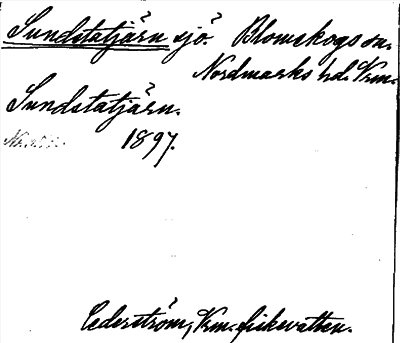 Sundstatjärn sjö. Blomskogs sn.
Nordmarks hd. Vrm.
Sundstatjärn.
1897.
Cederström, Vrm. fiskevatten.